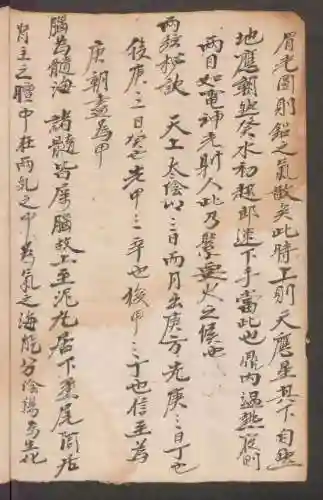 眉光圓則鉛之氣散矣此時上則天應星其下自然
地應潮然癸水初起即速下手當此也鼎內溫熱
兩目如電神光射人此乃緊要火之候也
兩弦 天上太陰 三日而月出庚方先庚三日丁也
後庚三日癸也先甲三辛也後甲三丁也信至為
庚朝盡為甲
腦為髓海 諸髓皆屬腦故上至泥丸居下至尾閭
腎主之膻中在兩乳之中為氣之海能分陰陽為生化